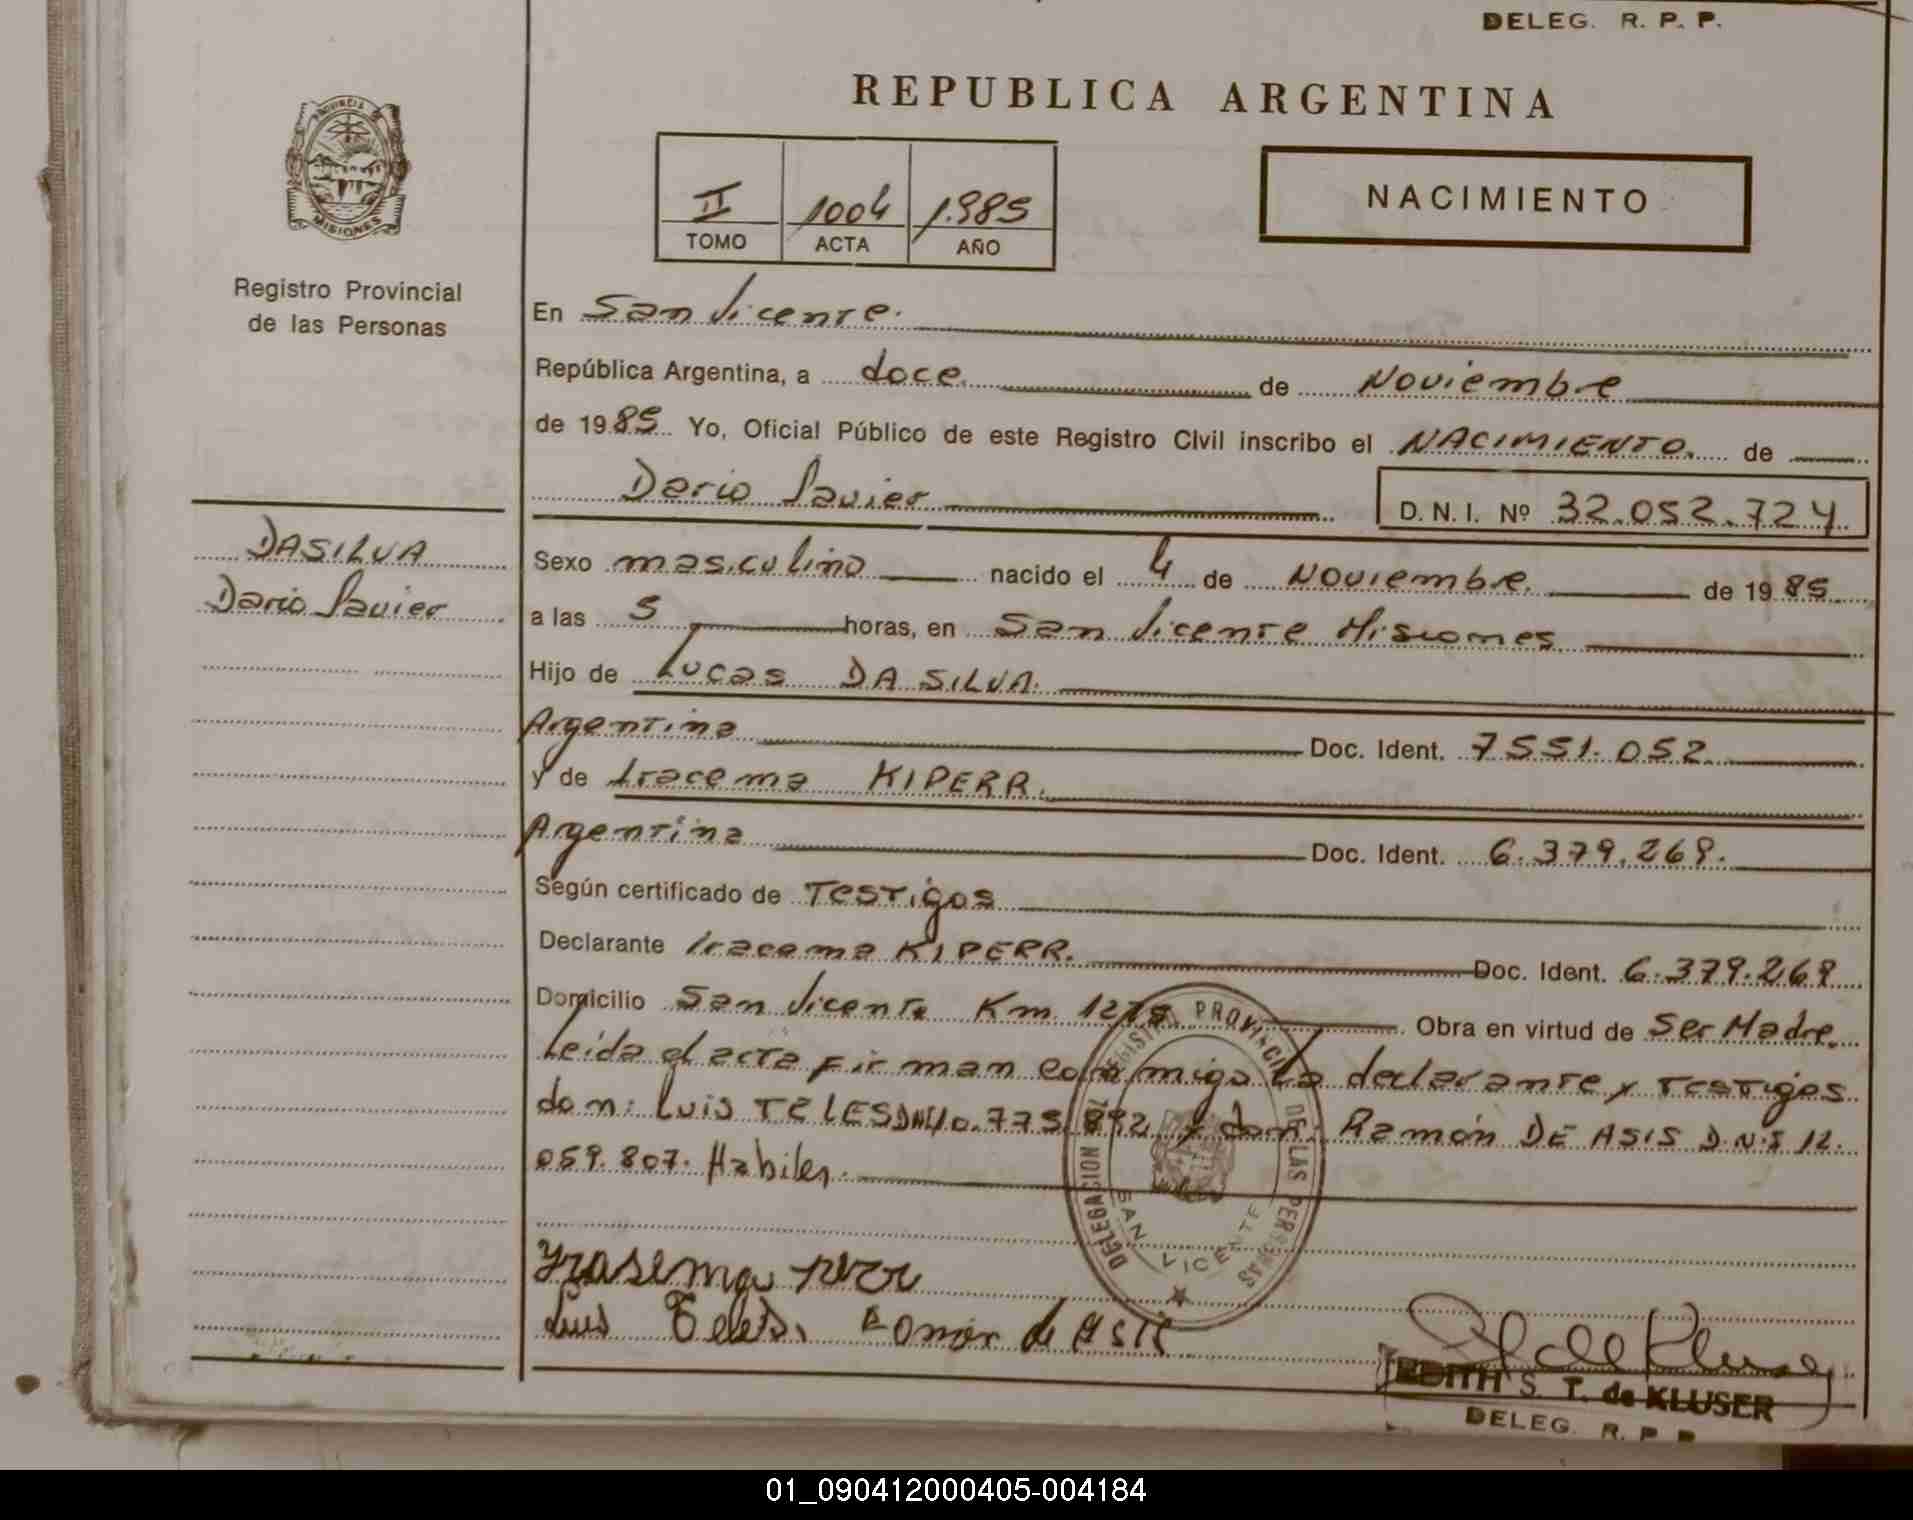 DELEG. R. P. P.
REPUBLICA ARGENTINA
PROVINCIA
MISIONES
II 1004 1.985
TOMO ACTA AÑO
NACIMIENTO
Registro Provincial
de las Personas
En San Vicente.
República Argentina, a doce. de Noviembre
de 1985 Yo, Oficial Público de este Registro Civil inscribo el NACIMIENTO. de
Dario Javier D. N. I. Nº 32.052.724
DASILVA
Dario Javier
Sexo masculino nacido el 4 de Noviembre. de 1985.
a las 5 horas, en San Vicente Misiones
Hijo de Lucas DA SILVA.
Argentina Doc. Ident. 7551.052.
y de Iracema KIPERR.
Argentina Doc. Ident. 6.379.269.
Según certificado de Testigos
Declarante Iracema KIPERR. Doc. Ident. 6.379.269
Domicilio San Vicente Km. 1275 Obra en virtud de Ser Madre.
Leída el acta firman conmigo La declarante y Testigos
don: Luis TELES DNI 10.775.892 y don: Ramón DE ASIS D.N.I 12.
059.807. Habiles.
DELEGACION REGISTRO PROVINCIAL DE LAS PERSONAS
SAN VICENTE
Yrasema
Luis Teles. Romon de Asis
EDITH S. T. de KLUSER
DELEG. R. P. P.
01_090412000405-004184